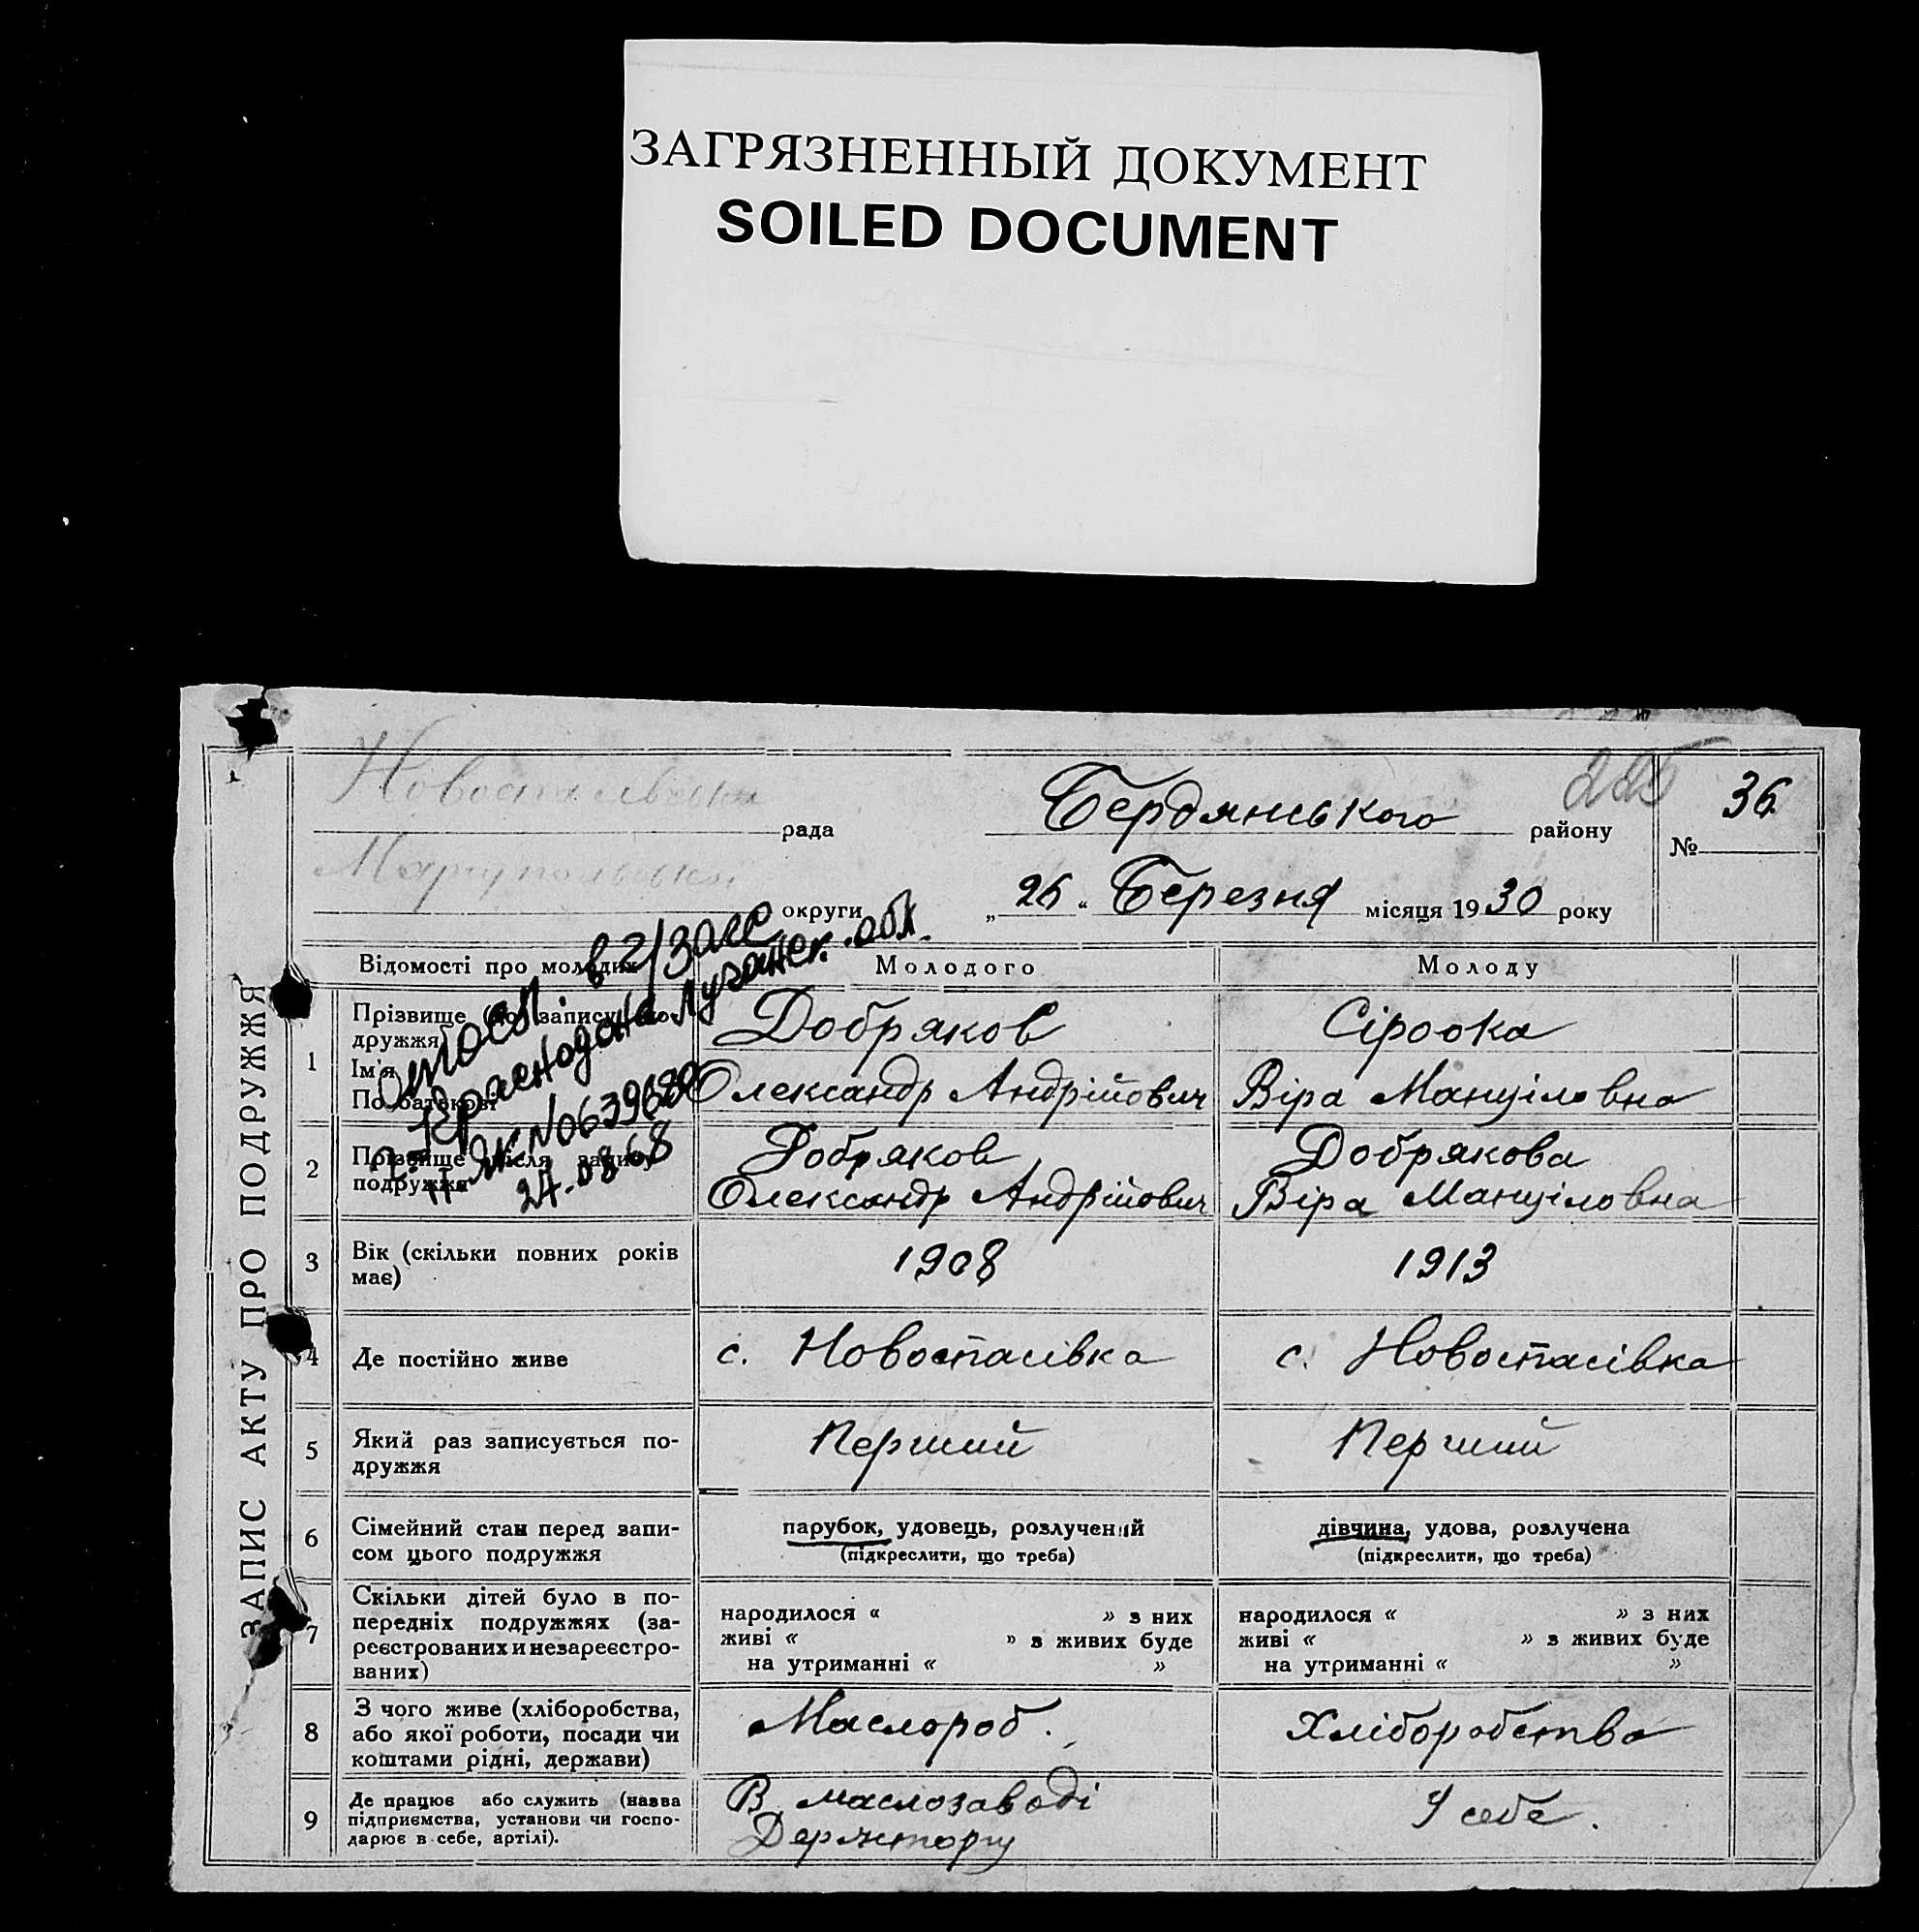 ЗАГРЯЗНЕННЫЙ ДОКУМЕНТ
SOILED DOCUMENT
рада
Бердянського району
225
№ 36
округи
„ 26 “ Березня місяця 1930 року
ЗАПИС АКТУ ПРО ПОДРУЖЖЯ
в г/загс
г. Краснодона Луганск. обл.
ЯК № 0639680
24.08.68
Відомості про молодих
Молодого
Молоду
1
Прізвище (до запису по-
дружжя)
Ім'я
По батькові
Добряков
Олександр Андрійович
Сіроока
Віра
2
Прізвище після запису
подружжя
Добряков
Олександр Андрійович
Добрякова
Віра
3
Вік (скільки повних років
має)
1908
1913
4
Де постійно живе
с. Новоспасівка
с. Новоспасівка
5
Який раз записується по-
дружжя
Перший
Перший
6
Сімейний стан перед запи-
сом цього подружжя
парубок, удовець, розлучений
(підкреслити, що треба)
дівчина, удова, розлучена
(підкреслити, що треба)
7
Скільки дітей було в по-
передніх подружжях (за-
реєстрованих и незареєстро-
ваних)
народилося « » з них
живі « » з живих буде
на утриманні « »
народилося « » з них
живі « » з живих буде
на утриманні « »
8
З чого живе (хліборобства,
або якої роботи, посади чи
коштами рідні, держави)
Маслороб.
Хліборобство
9
Де працює або служить (назва
підприємства, установи чи госпо-
дарює в себе, артілі).
В маслозаводі
Держторгу
У себе.